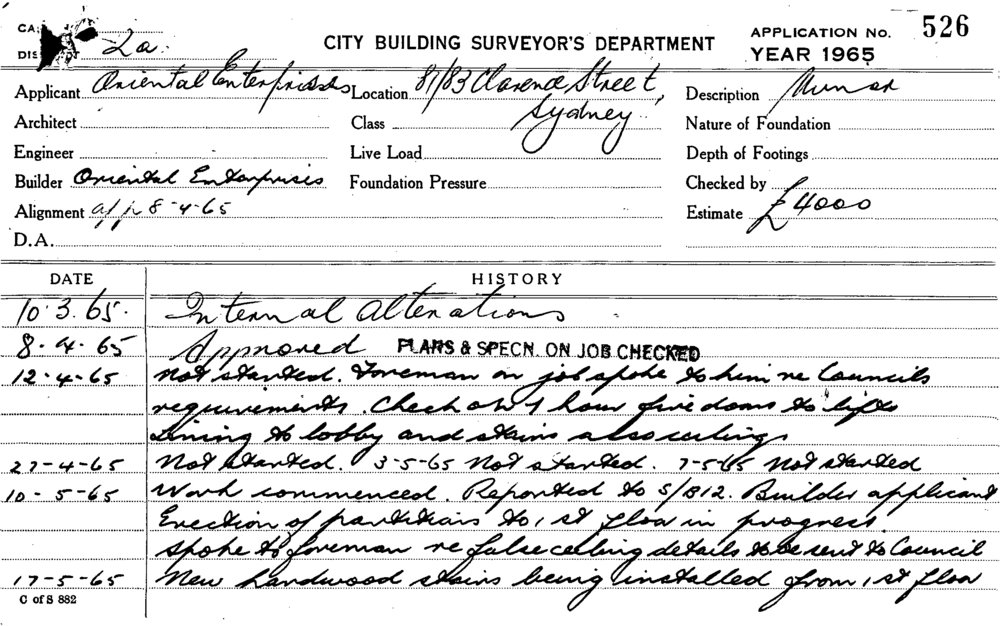 CITY BUILDING SURVEYOR'S DEPARTMENT
APPLICATION No. 526
YEAR 1965
2a.
Applicant Oriental Enterprises
Location 81/83 Clarence Street, Sydney
Description
Architect
Class
Nature of Foundation
Engineer
Live Load
Depth of Footings
Builder Oriental Enterprises
Foundation Pressure
Checked by
Alignment app 8-4-65
Estimate £4000
D.A.
DATE HISTORY
10.3.65. Internal alterations
8.4.65 Approved PLANS & SPECN. ON JOB CHECKED
12-4-65 Not started. Foreman on job spoke to him re Councils
requirements. Check on 1 hour fire doors to lifts
Lining to lobby and stairs also ceilings
27-4-65 Not started. 3-5-65 Not started. 7-5-65 Not started
10-5-65 Work commenced. Reported to S/812. Builder applicant
Erection of partitions to 1st floor in progress.
Spoke to foreman re false ceiling details to be sent to Council
17-5-65 New hardwood stairs being installed from 1st floor
C of S 882